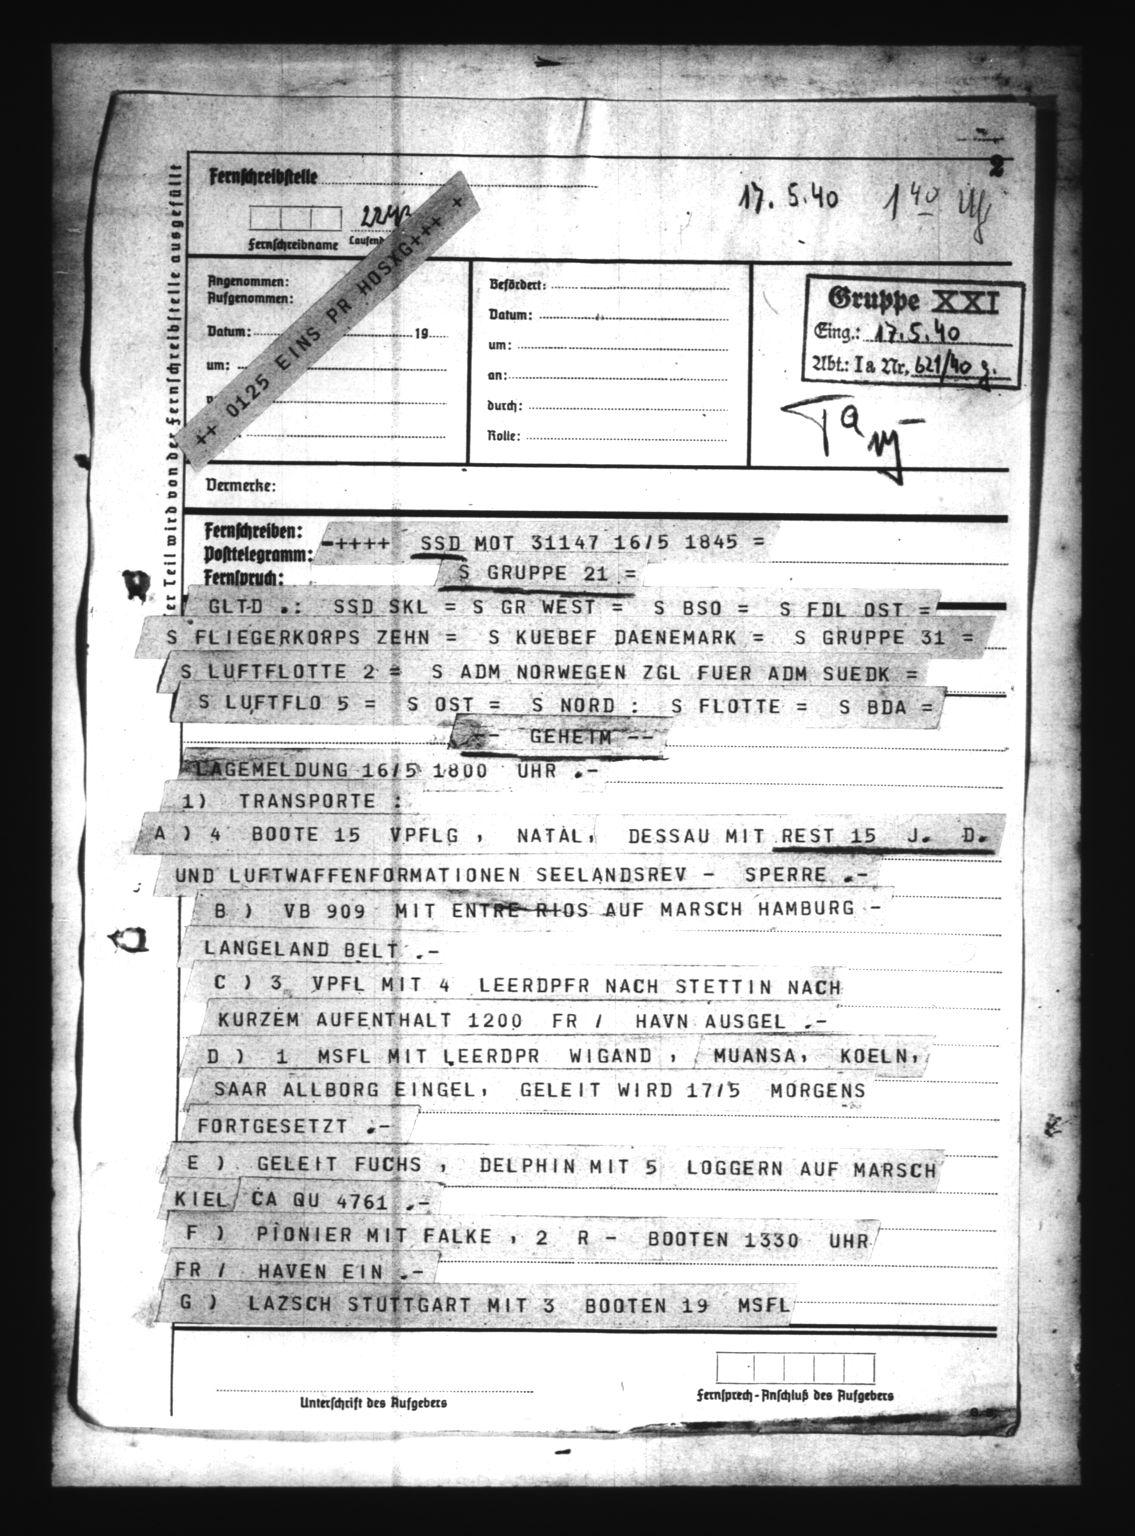 2
Fernschreibstelle
17. 5. 40 1 40
Fernschreibname
++ 0125 EINS PR HOSXG+++ +
Angenommen:
Aufgenommen:
Datum: 19
um:
Befördert:
Datum:
um:
an:
durch:
Rolle:
Gruppe XXI
Eing.: 17.5.40
Abt.: Ia Nr. 621/40 g.
Vermerke:
er Teil wird von der Fernschreibstelle ausgefüllt
Fernschreiben:
Posttelegramm:
Fernspruch:
-++++ SSD MOT 31147 16/5 1845 =
S GRUPPE 21 =
GLTD .: SSD SKL = S GR WEST = S BSO = S FDL OST =
S FLIEGERKORPS ZEHN = S KUEBEF DAENEMARK = S GRUPPE 31 =
S LUFTFLOTTE 2 = S ADM NORWEGEN ZGL FUER ADM SUEDK =
S LUFTFLO 5 = S OST = S NORD : S FLOTTE = S BDA =
-- GEHEIM --
LAGEMELDUNG 16/5 1800 UHR .-
1) TRANSPORTE :
A ) 4 BOOTE 15 VPFLG , NATAL, DESSAU MIT REST 15 J. D.
UND LUFTWAFFENFORMATIONEN SEELANDSREV - SPERRE .-
B ) VB 909 MIT ENTRE RIOS AUF MARSCH HAMBURG -
LANGELAND BELT .-
C ) 3 VPFL MIT 4 LEERDPFR NACH STETTIN NACH
KURZEM AUFENTHALT 1200 FR / HAVN AUSGEL .-
D ) 1 MSFL MIT LEERDPR WIGAND , MUANSA, KOELN,
SAAR ALLBORG EINGEL, GELEIT WIRD 17/5 MORGENS
FORTGESETZT .-
E ) GELEIT FUCHS , DELPHIN MIT 5 LOGGERN AUF MARSCH
KIEL CA QU 4761 .-
F ) PIONIER MIT FALKE , 2 R - BOOTEN 1330 UHR
FR / HAVEN EIN .-
G ) LAZSCH STUTTGART MIT 3 BOOTEN 19 MSFL
Unterschrift des Aufgebers
Fernsprech-Anschluß des Aufgebers